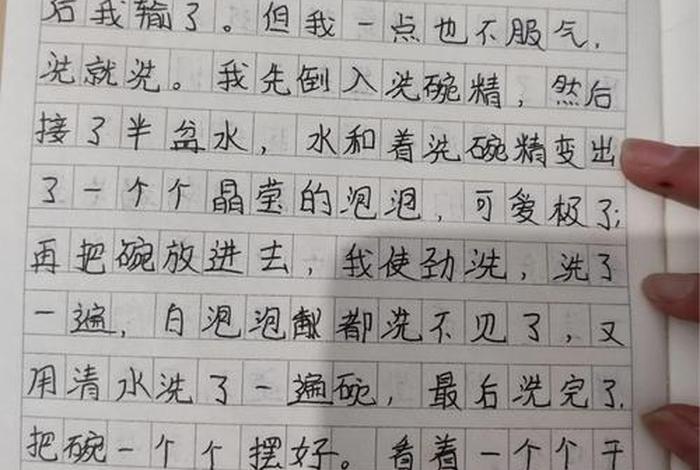 后我输了。但我一点也不服气，
洗就洗。我先倒入洗碗精，然后
接了半盆水，水和着洗碗精变出
了一个个晶莹的泡泡，可爱极了；
再把碗放进去，我使劲洗，洗了
一遍，白泡泡都洗不见了，又
用清水洗了一遍碗，最后洗完了，
把碗一个个摆好。看着一个个干